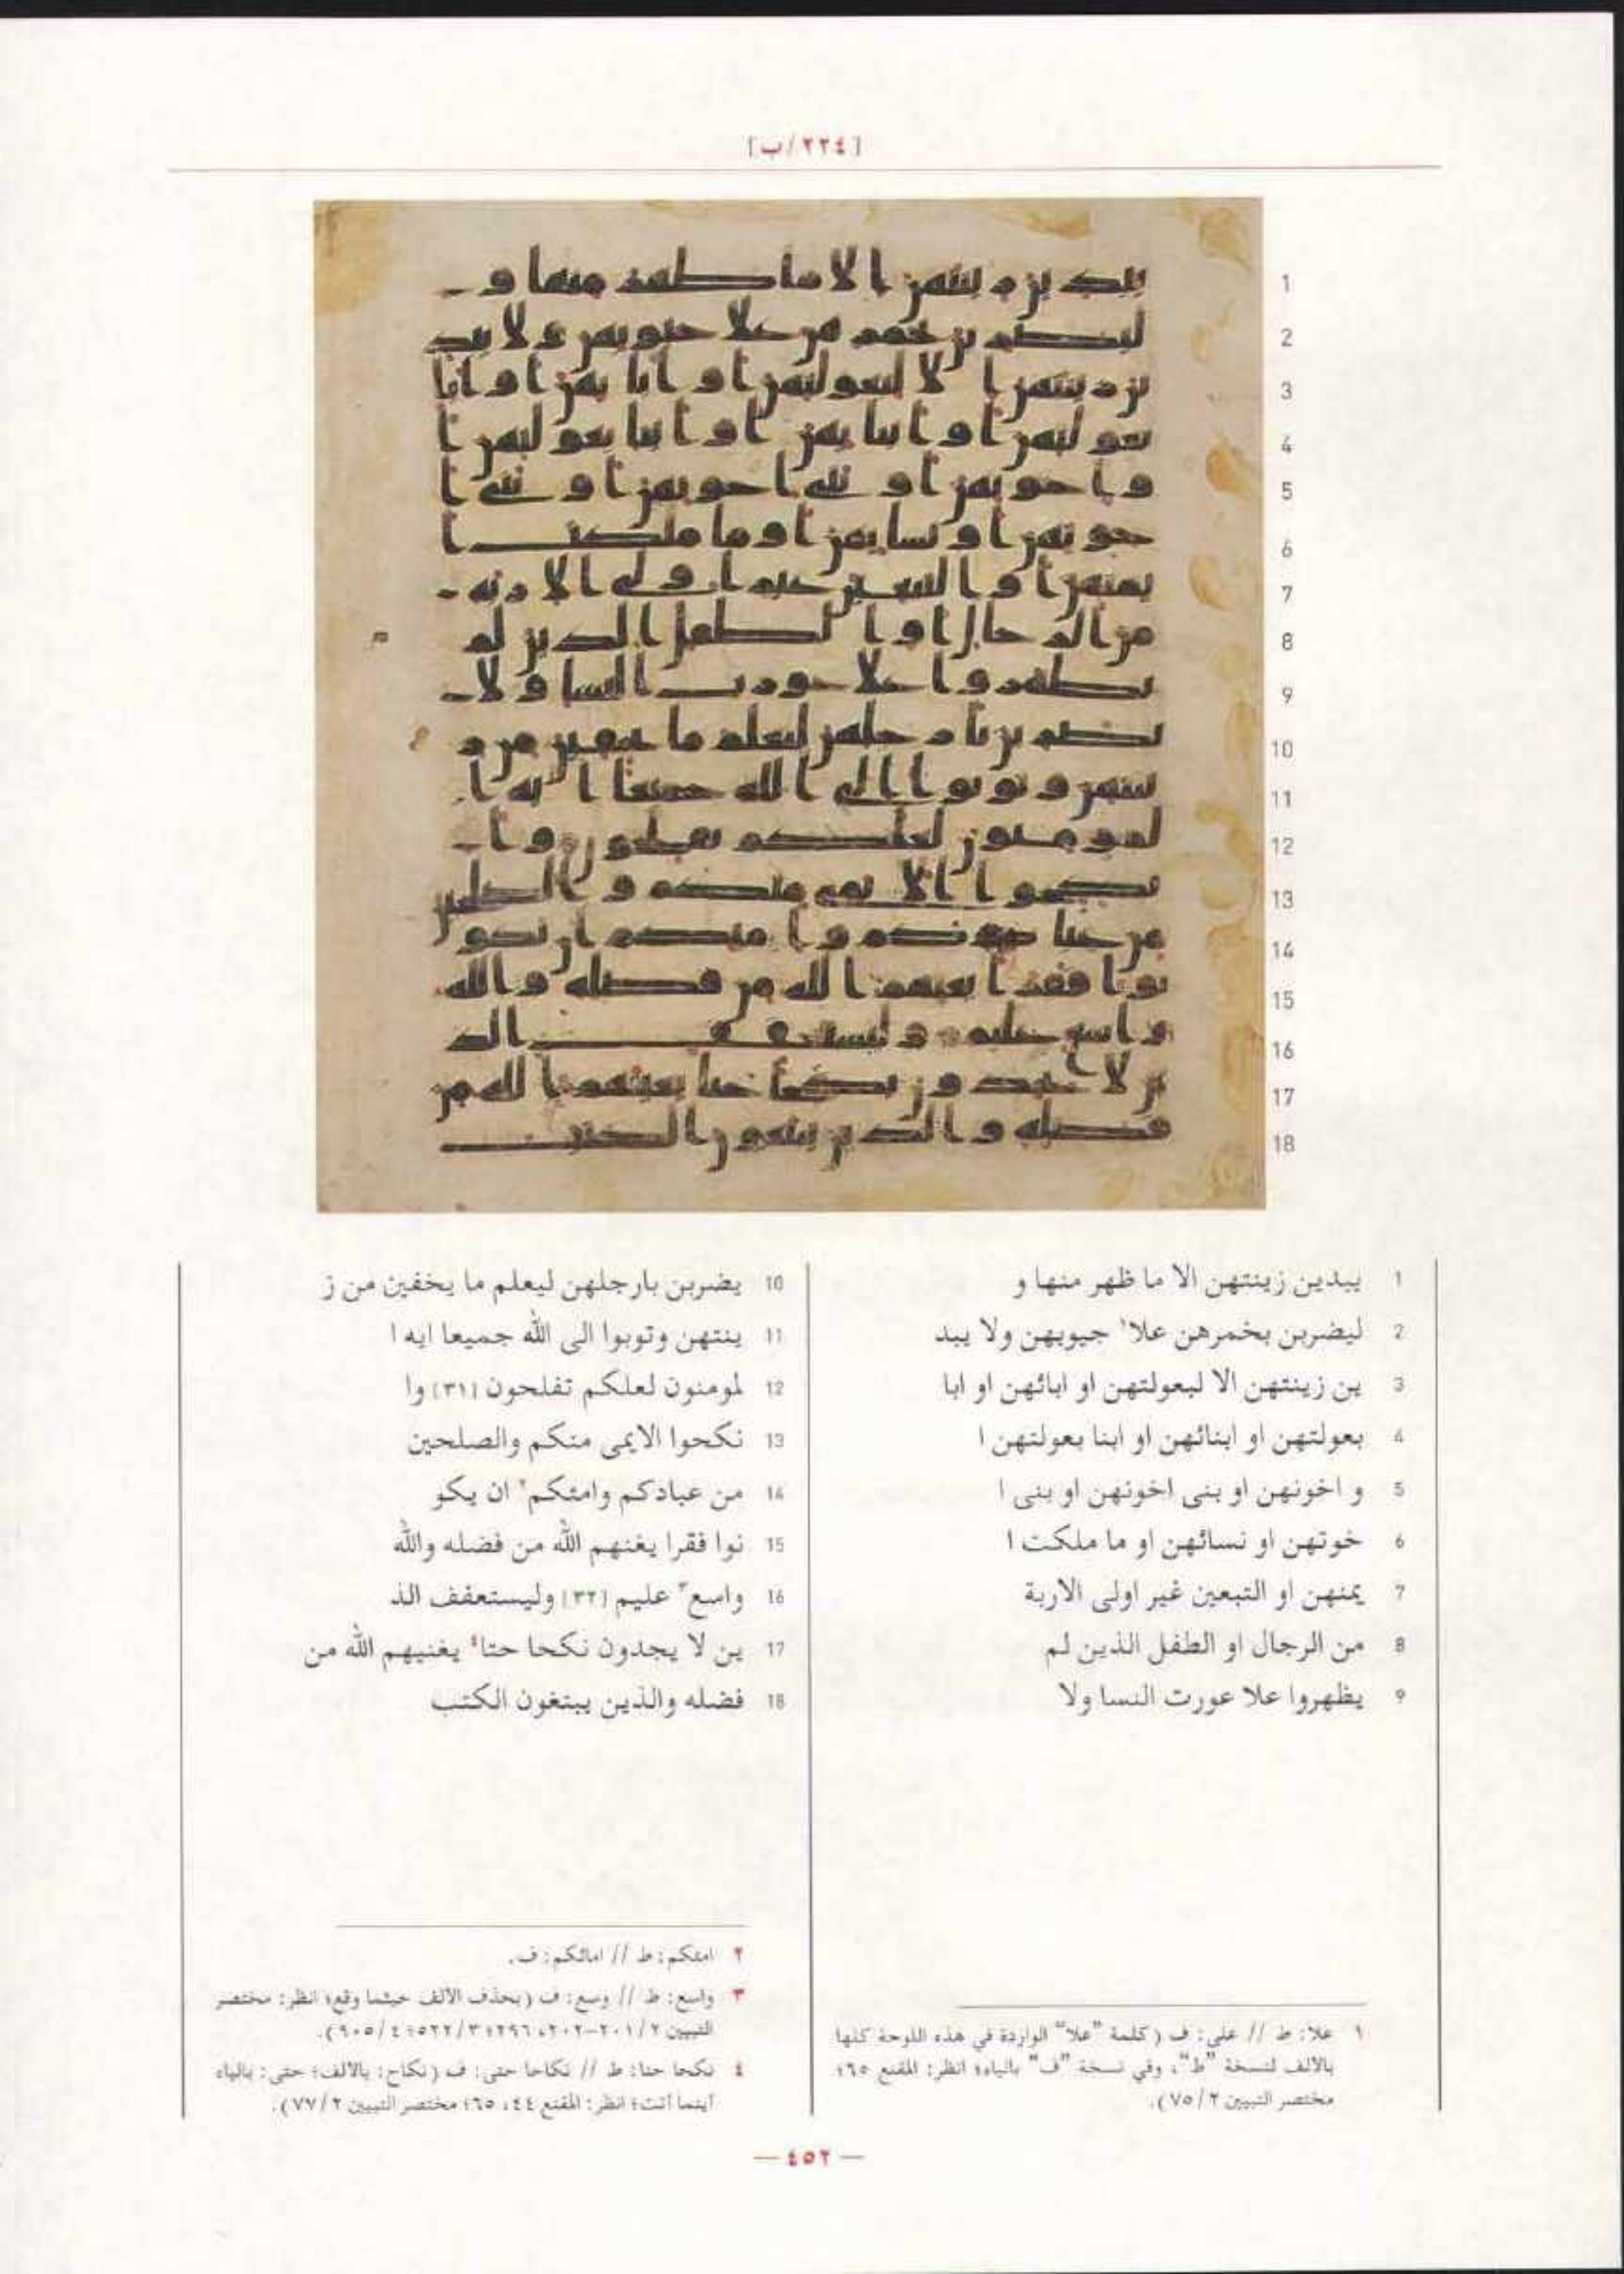 [٢٢٤/ب]
1 يبدين زينتهن الا ما ظهر منها و
2 ليضربن بخمرهن علا١ جيوبهن ولا يبد
3 ين زينتهن الا لبعولتهن او ابائهن او ابا
4 بعولتهن او ابنائهن او ابنا بعولتهن ا
5 و اخونهن او بنى اخونهن او بنى ا
6 خوتهن او نسائهن او ما ملكت ا
7 يمنهن او التبعين غير اولى الاربة
8 من الرجال او الطفل الذين لم
9 يظهروا علا عورت النسا ولا
10 يضربن بارجلهن ليعلم ما يخفين من ز
11 ينتهن وتوبوا الى الله جميعا ايه ا
12 لمومنون لعلكم تفلحون [٣١] وا
13 نكحوا الايمى منكم والصلحين
14 من عبادكم وامئكم٢ ان يكو
15 نوا فقرا يغنهم الله من فضله والله
16 واسع٣ عليم [٣٢] وليستعفف الذ
17 ين لا يجدون نكحا حتا٤ يغنيهم الله من
18 فضله والذين يبتغون الكتب
١ علا: ط // على: ف (كلمة "علا" الواردة في هذه اللوحة كلها
بالالف لنسخة "ط"، وفي نسخة "ف" بالياء؛ انظر: المقنع ٦٥؛
مختصر التبيين ٧٥/٢).
٢ امئكم: ط // امائكم: ف.
٣ واسع: ط // وسع: ف (بحذف الالف حيثما وقع؛ انظر: مختصر
التبيين ٢٠١/٢-٢٠٢، ٢٩٦؛ ٥٢٢/٣؛ ٩٠٥/٤).
٤ نكحا حتا: ط // نكاحا حتى: ف (نكاح: بالالف؛ حتى: بالياء
أينما أتت؛ انظر: المقنع ٤٤، ٦٥؛ مختصر التبيين ٧٧/٢).
— ٤٥٢ —